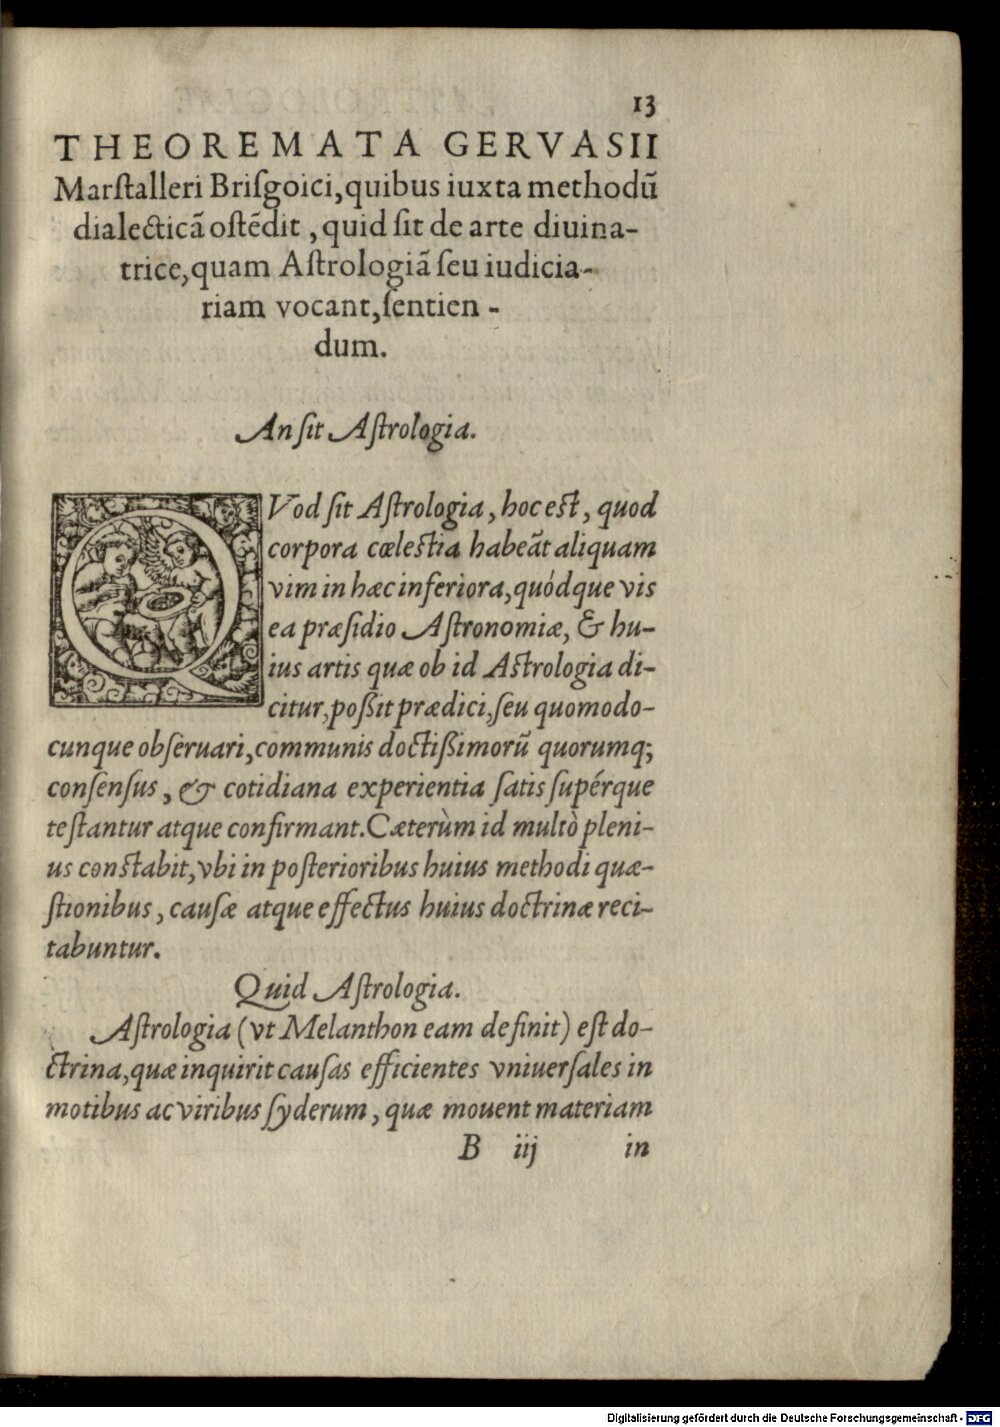 13
THEOREMATA GERVASII
Marſtalleri Briſgoici, quibus iuxta methodũ
dialecticã oſtẽdit, quid ſit de arte diuina-
trice, quam Aſtrologiã ſeu iudicia-
riam vocant, ſentien-
dum.
An ſit Aſtrologia.
QVod ſit Aſtrologia, hoc eſt, quod
corpora cœleſtia habeãt aliquam
vim in hæc inferiora, quódque vis
ea præſidio Aſtronomiæ, & hu-
ius artis quæ ob id Aſtrologia di-
citur, poßit prædici, ſeu quomodo-
cunque obſeruari, communis doctißimorũ quorumq;
conſenſus, & cotidiana experientia ſatis ſupérque
teſtantur atque confirmant. Cæterùm id multò pleni-
us conſtabit, vbi in poſterioribus huius methodi quæ-
ſtionibus, cauſæ atque effectus huius doctrinæ reci-
tabuntur.
Quid Aſtrologia.
Aſtrologia (vt Melanthon eam definit) eſt do-
ctrina, quæ inquirit cauſas efficientes vniuerſales in
motibus ac viribus ſyderum, quæ mouent materiam
B iij in
Digitalisierung gefördert durch die Deutsche Forschungsgemeinschaft - DFG